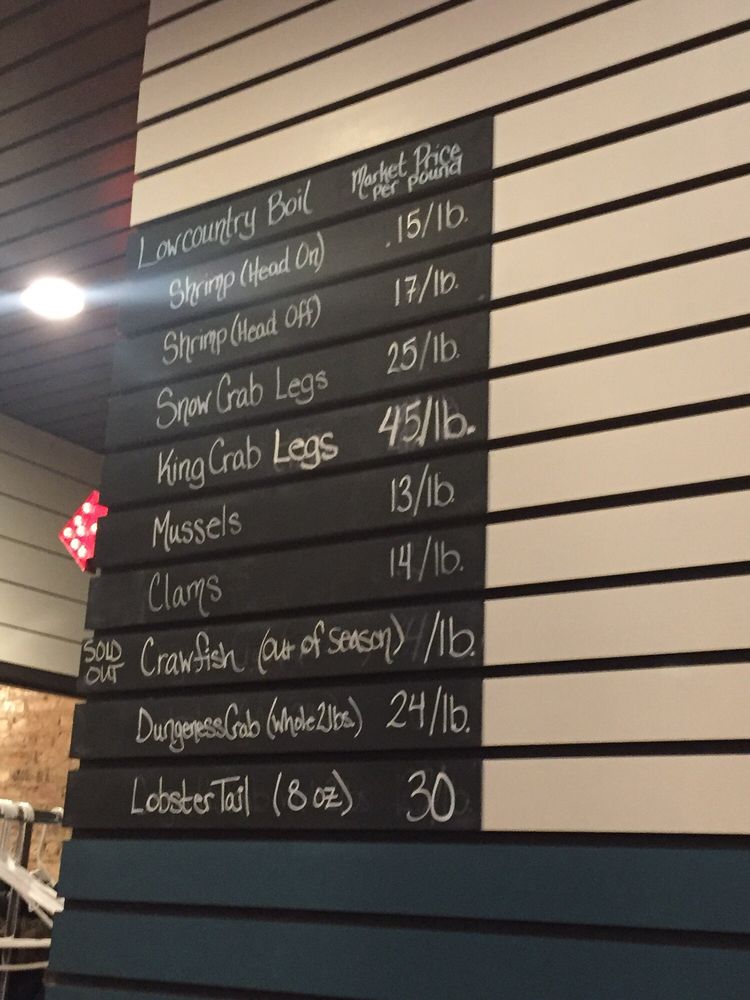 Lowcountry Boil Market Price
per pound
Shrimp (Head On) .15/lb.
Shrimp (Head Off) 17/lb.
Snow Crab Legs 25/lb.
King Crab Legs 45/lb.
Mussels 13/lb.
Clams 14/lb.
SOLD OUT Crawfish (out of season) /lb.
Dungeness Crab (whole 2lbs) 24/lb.
Lobster Tail (8 oz) 30